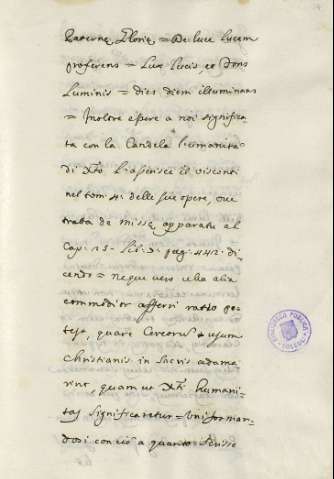 Paternę Glorię = De luce lucem
proferens = Lux lucis, et Fons
Luminis = dies diem illuminans
= Inoltre essere a noi significa-
ta con la Candela l'umanità
di Xto. L'asserisce il visconti
nel tom. 4. delle sue opere, ove
tratta de missę apparatu al
Cap. 25. Lib. 3. pag. 442. di-
cendo = neque vero ulla alia
commodior afferri ratio po-
test, quare Cereorum usum
Christiani in sacris adama-
rint, quam ut Xti humani-
tas significaretur = Uniforman-
dosi con ciò a quanto scrisse
BIBLIOTECA PUBLICA
TOLEDO